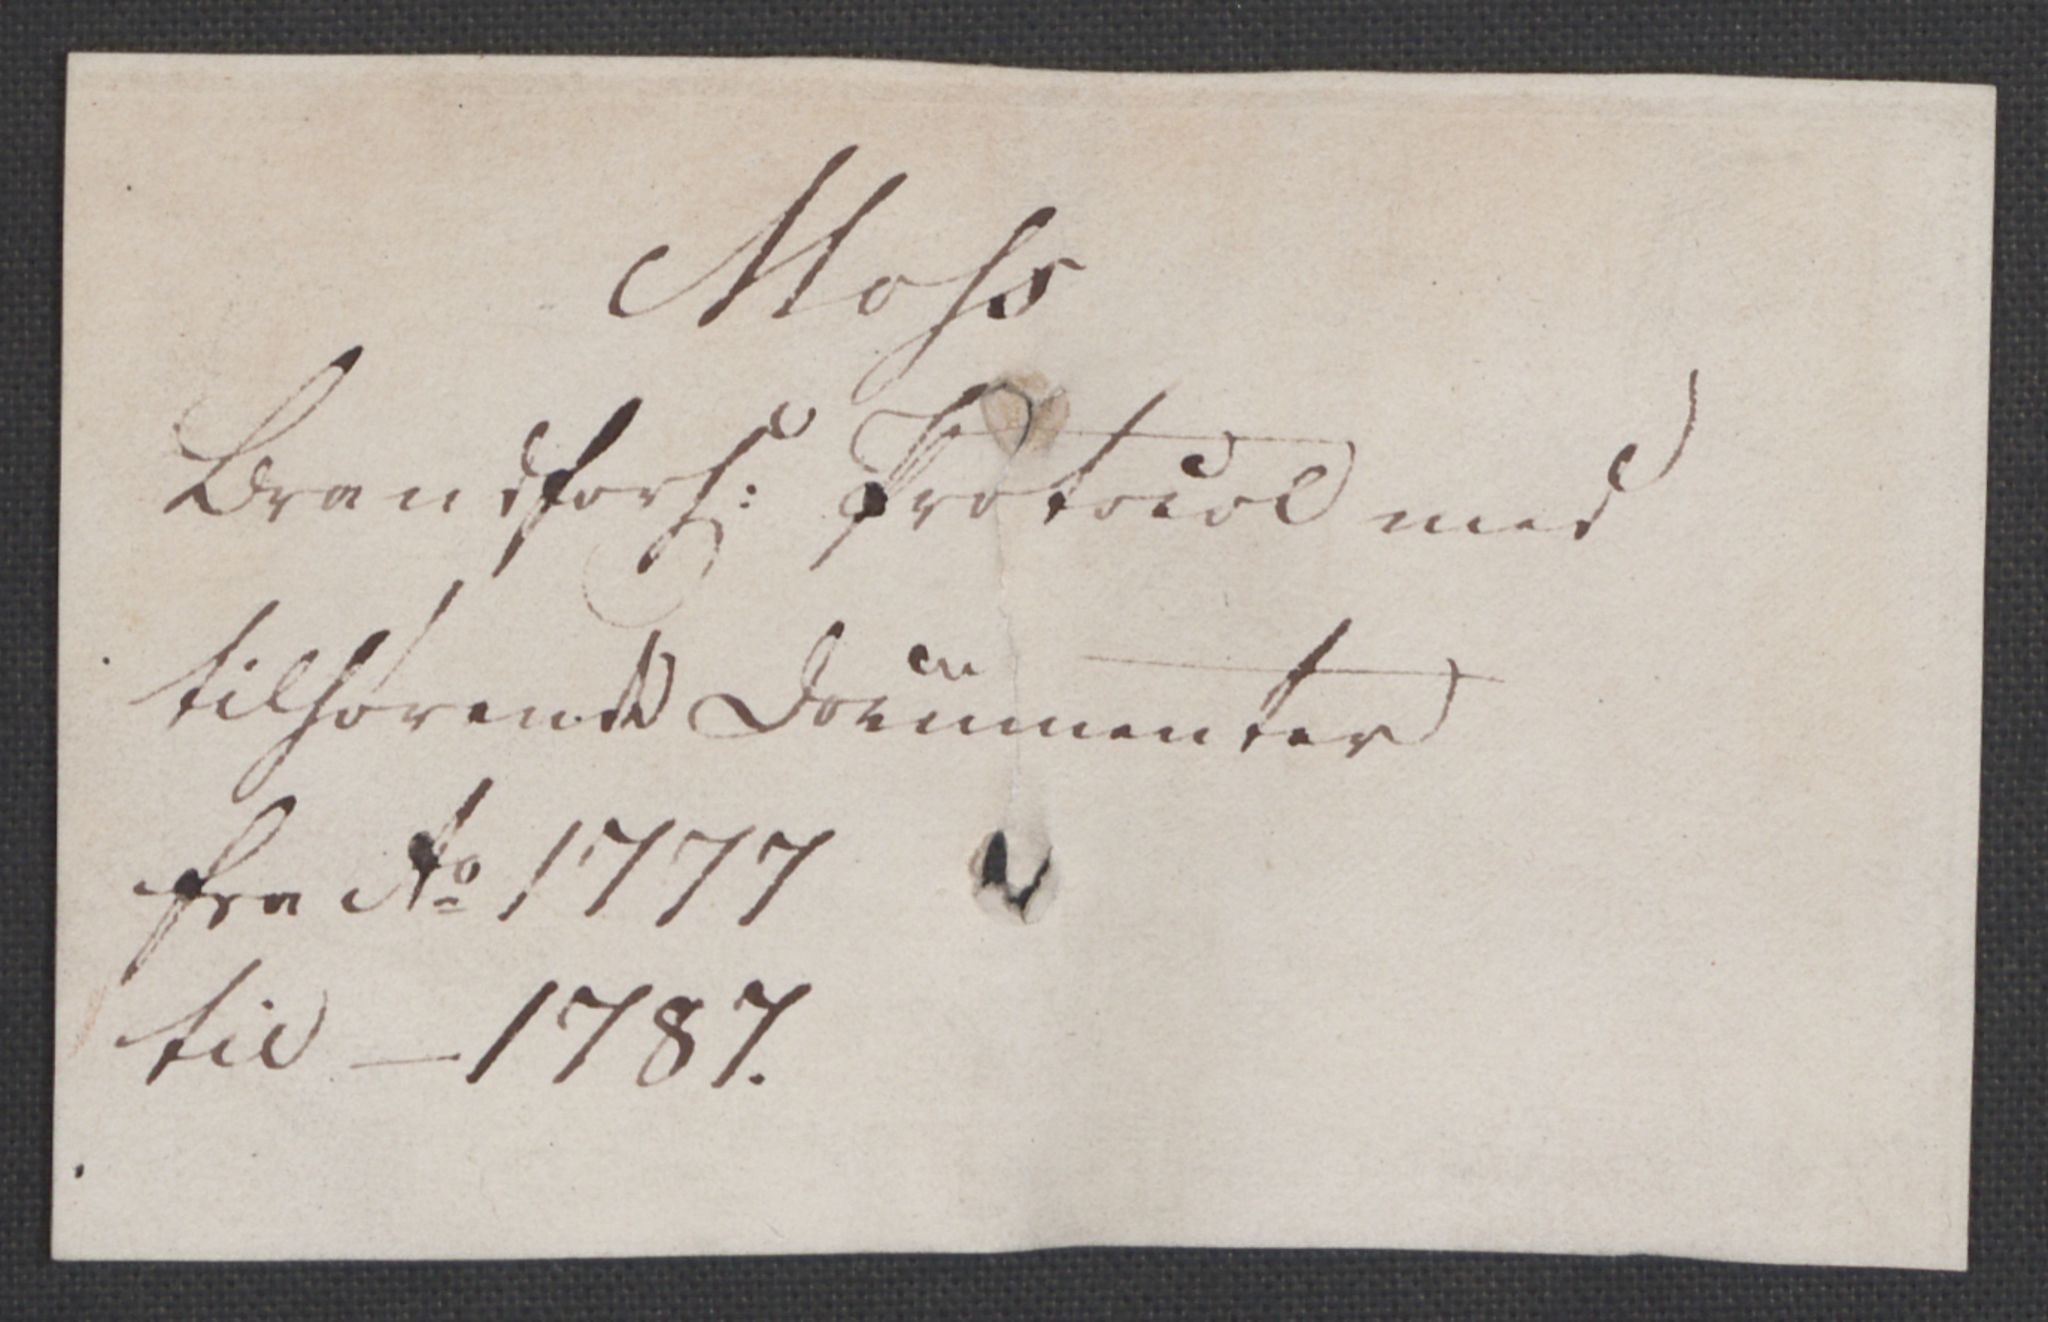 Moss
Brandfors: Protocol med
tilhørende Documenter
fra Aº 1777
til — 1787.